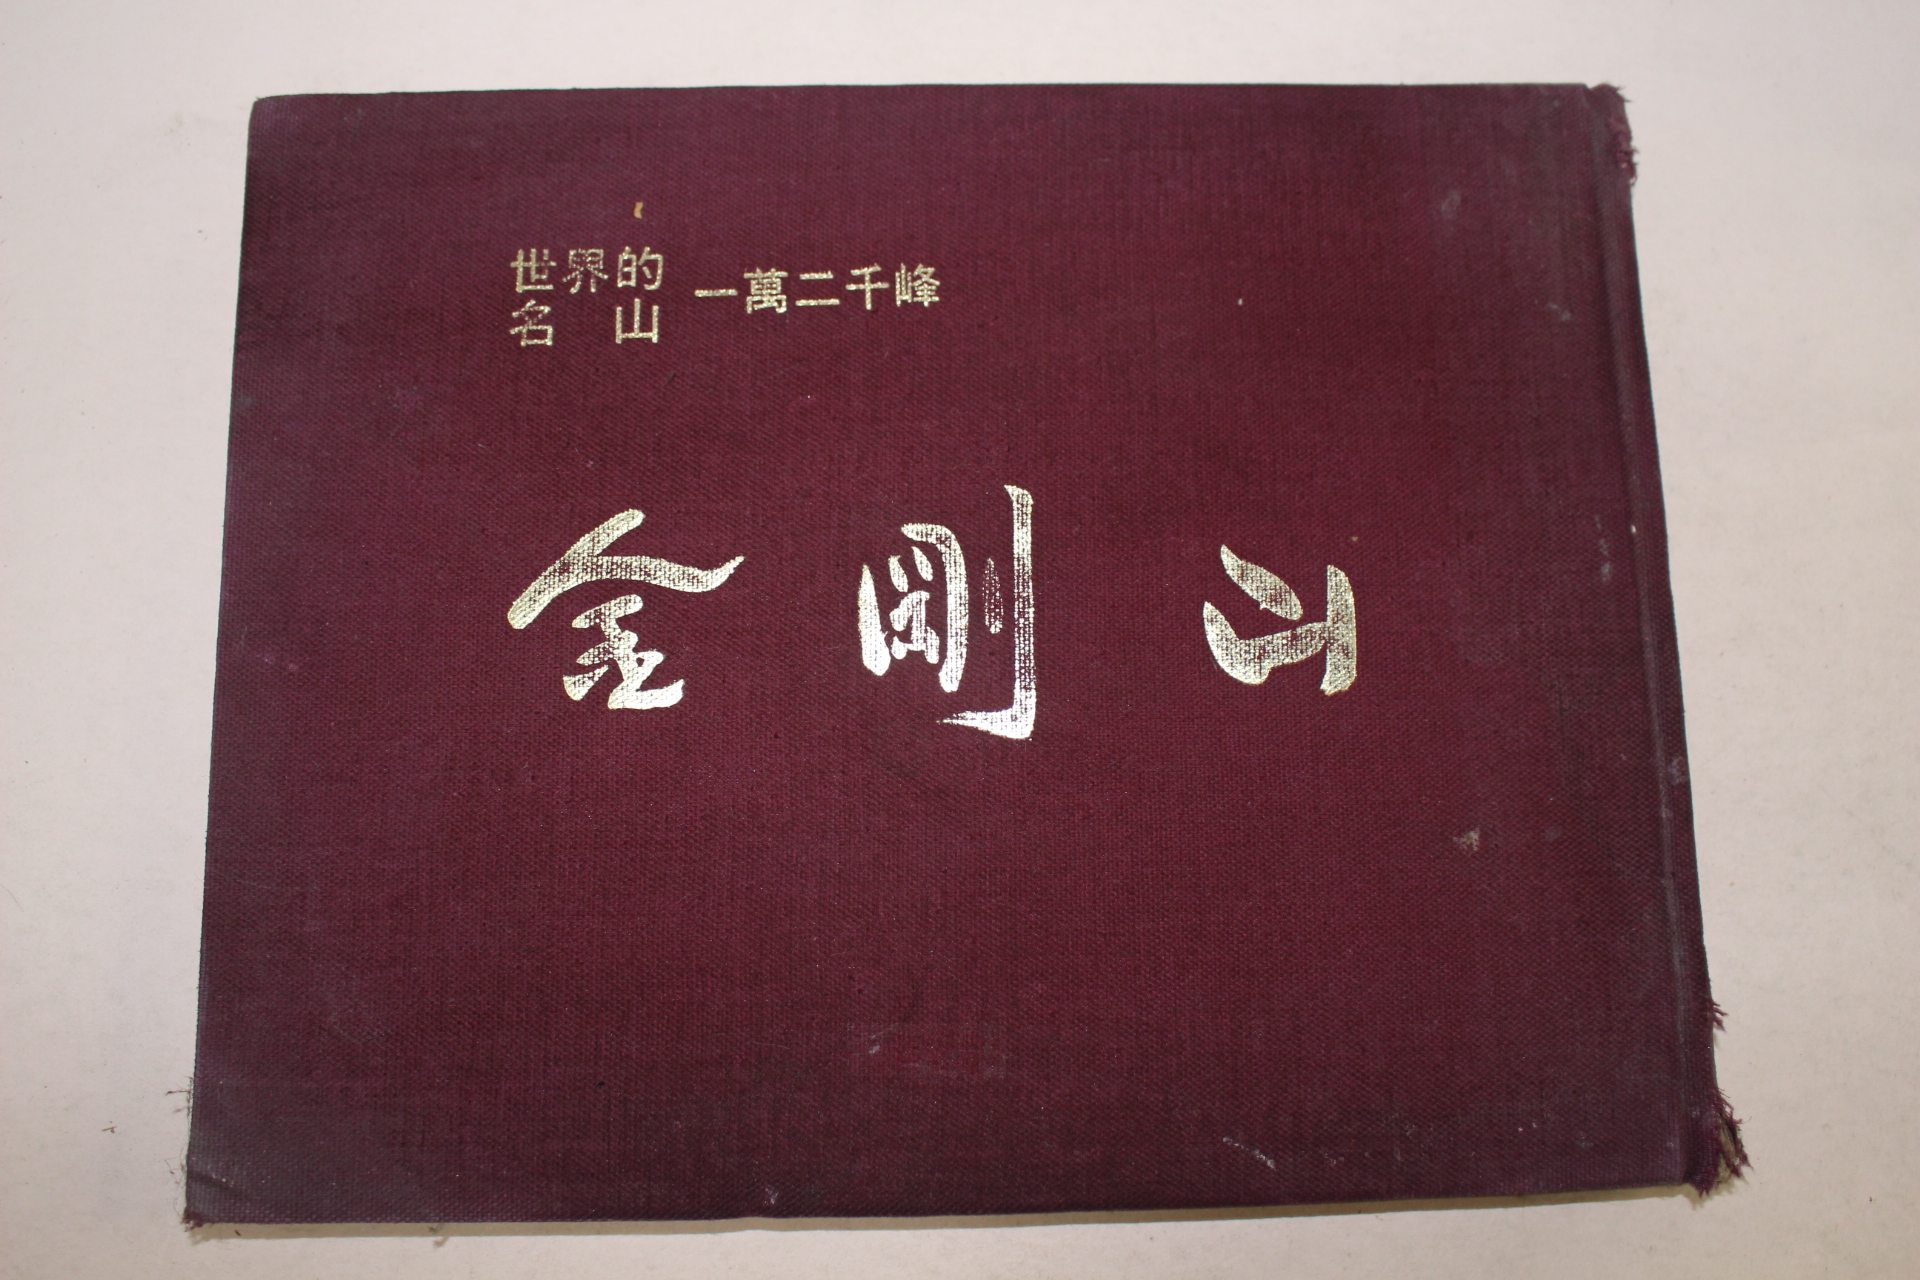 世界的
名山
一萬二千峰
金剛山